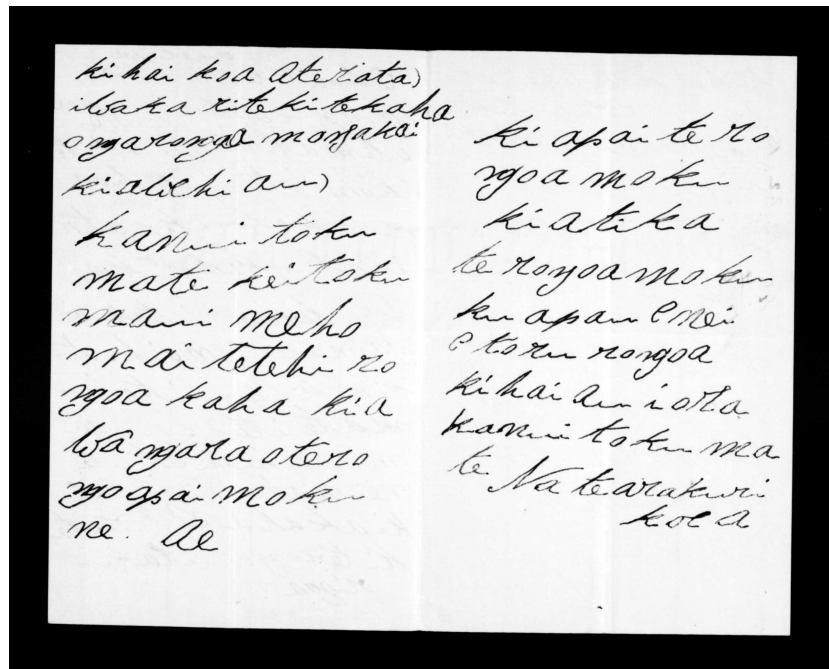 kihai koa Ateriata)
iwaka rite ki tekaha
o ngarongoa mangakai
kiawehi au)
kanui toku
mate kei toku
maui meho
mai tetehi ro
ngoa kaha kia
Wa ngara otero
ngoapai moku
ne. Ae
ki apai te ro
ngoa moku
kiatika
te rongoa moku
ku apau enei
e toru rongoa
kihai au i ora
kanui toku ma
te Na tearakuri
koe a